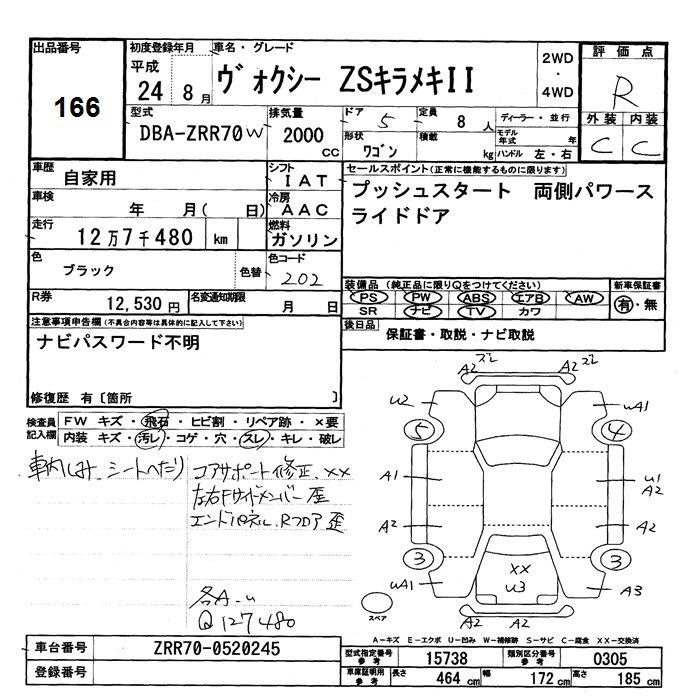 出品番号
166
初度登録年月
平成
24 8 月
車名・グレード
ヴォクシー ZSキラメキII
2WD
・
4WD
評価点
R
外装 内装
C C
型式
DBA-ZRR70 W
排気量
2000
CC
ドア
5
定員
8 人
ディーラー・並行
形状
ワゴン
積載
kg
モデル
年式 年
ハンドル 左・右
車歴
自家用
シフト
I A T
車検
年 月( 日)
冷房
A A C
走行
12万7千480 km
燃料
ガソリン
色
ブラック
色替
色コード
202
R券
12,530 円
名変通知期限
月 日
セールスポイント(正常に機能するものに限ります)
プッシュスタート 両側パワース
ライドドア
装備品 (純正品に限りQをつけてください)
PS PW ABS エアB AW
SR ナビ TV カワ
新車保証書
有・無
後日品
保証書・取説・ナビ取説
注意事項申告欄(不具合内容等は具体的に記入して下さい)
ナビパスワード不明
修復歴 有〔箇所 〕
検査員
記入欄
FW キズ・飛石・ヒビ割・リペア跡・×要
内装 キズ・汚レ・コゲ・穴・スレ・キレ・破レ
車内しみ、シートへたり
コアサポート修正、××
左右Fサイドメンバー歪
エンドパネル、Rフロア歪
各A・u
Q127480
ズレ
A2
A2
ズレ
A2
U2
uA1
5
4
A1
u1
A2
A2
A2
3
3
××
u3
uA1
A3
A2 A2
スペア
A-キズ E-エクボ U-凹み W-補修跡 S-サビ C-腐食 XX-交換済
車台番号
ZRR70-0520245
登録番号
型式指定番号
参考
15738
類別区分番号
参考
0305
車庫証明用
参考
長さ
464 cm
幅
172 cm
高さ
185 cm